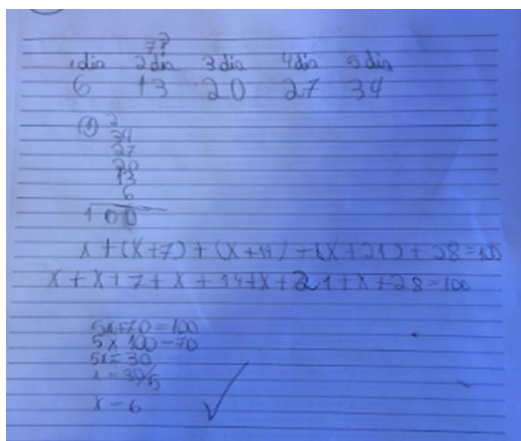 7?
1 dia 2 dia 3 dia 4 dia 5 dia
6 13 20 27 34
2
34
27
20
13
6
100
x + (x+7) + (x+14) + (x+21) + 28 = 100
x + x + 7 + x + 14 + x + 21 + x + 28 = 100
5x+70 = 100
5x 100 - 70
5x = 30
x = 30/5
x - 6